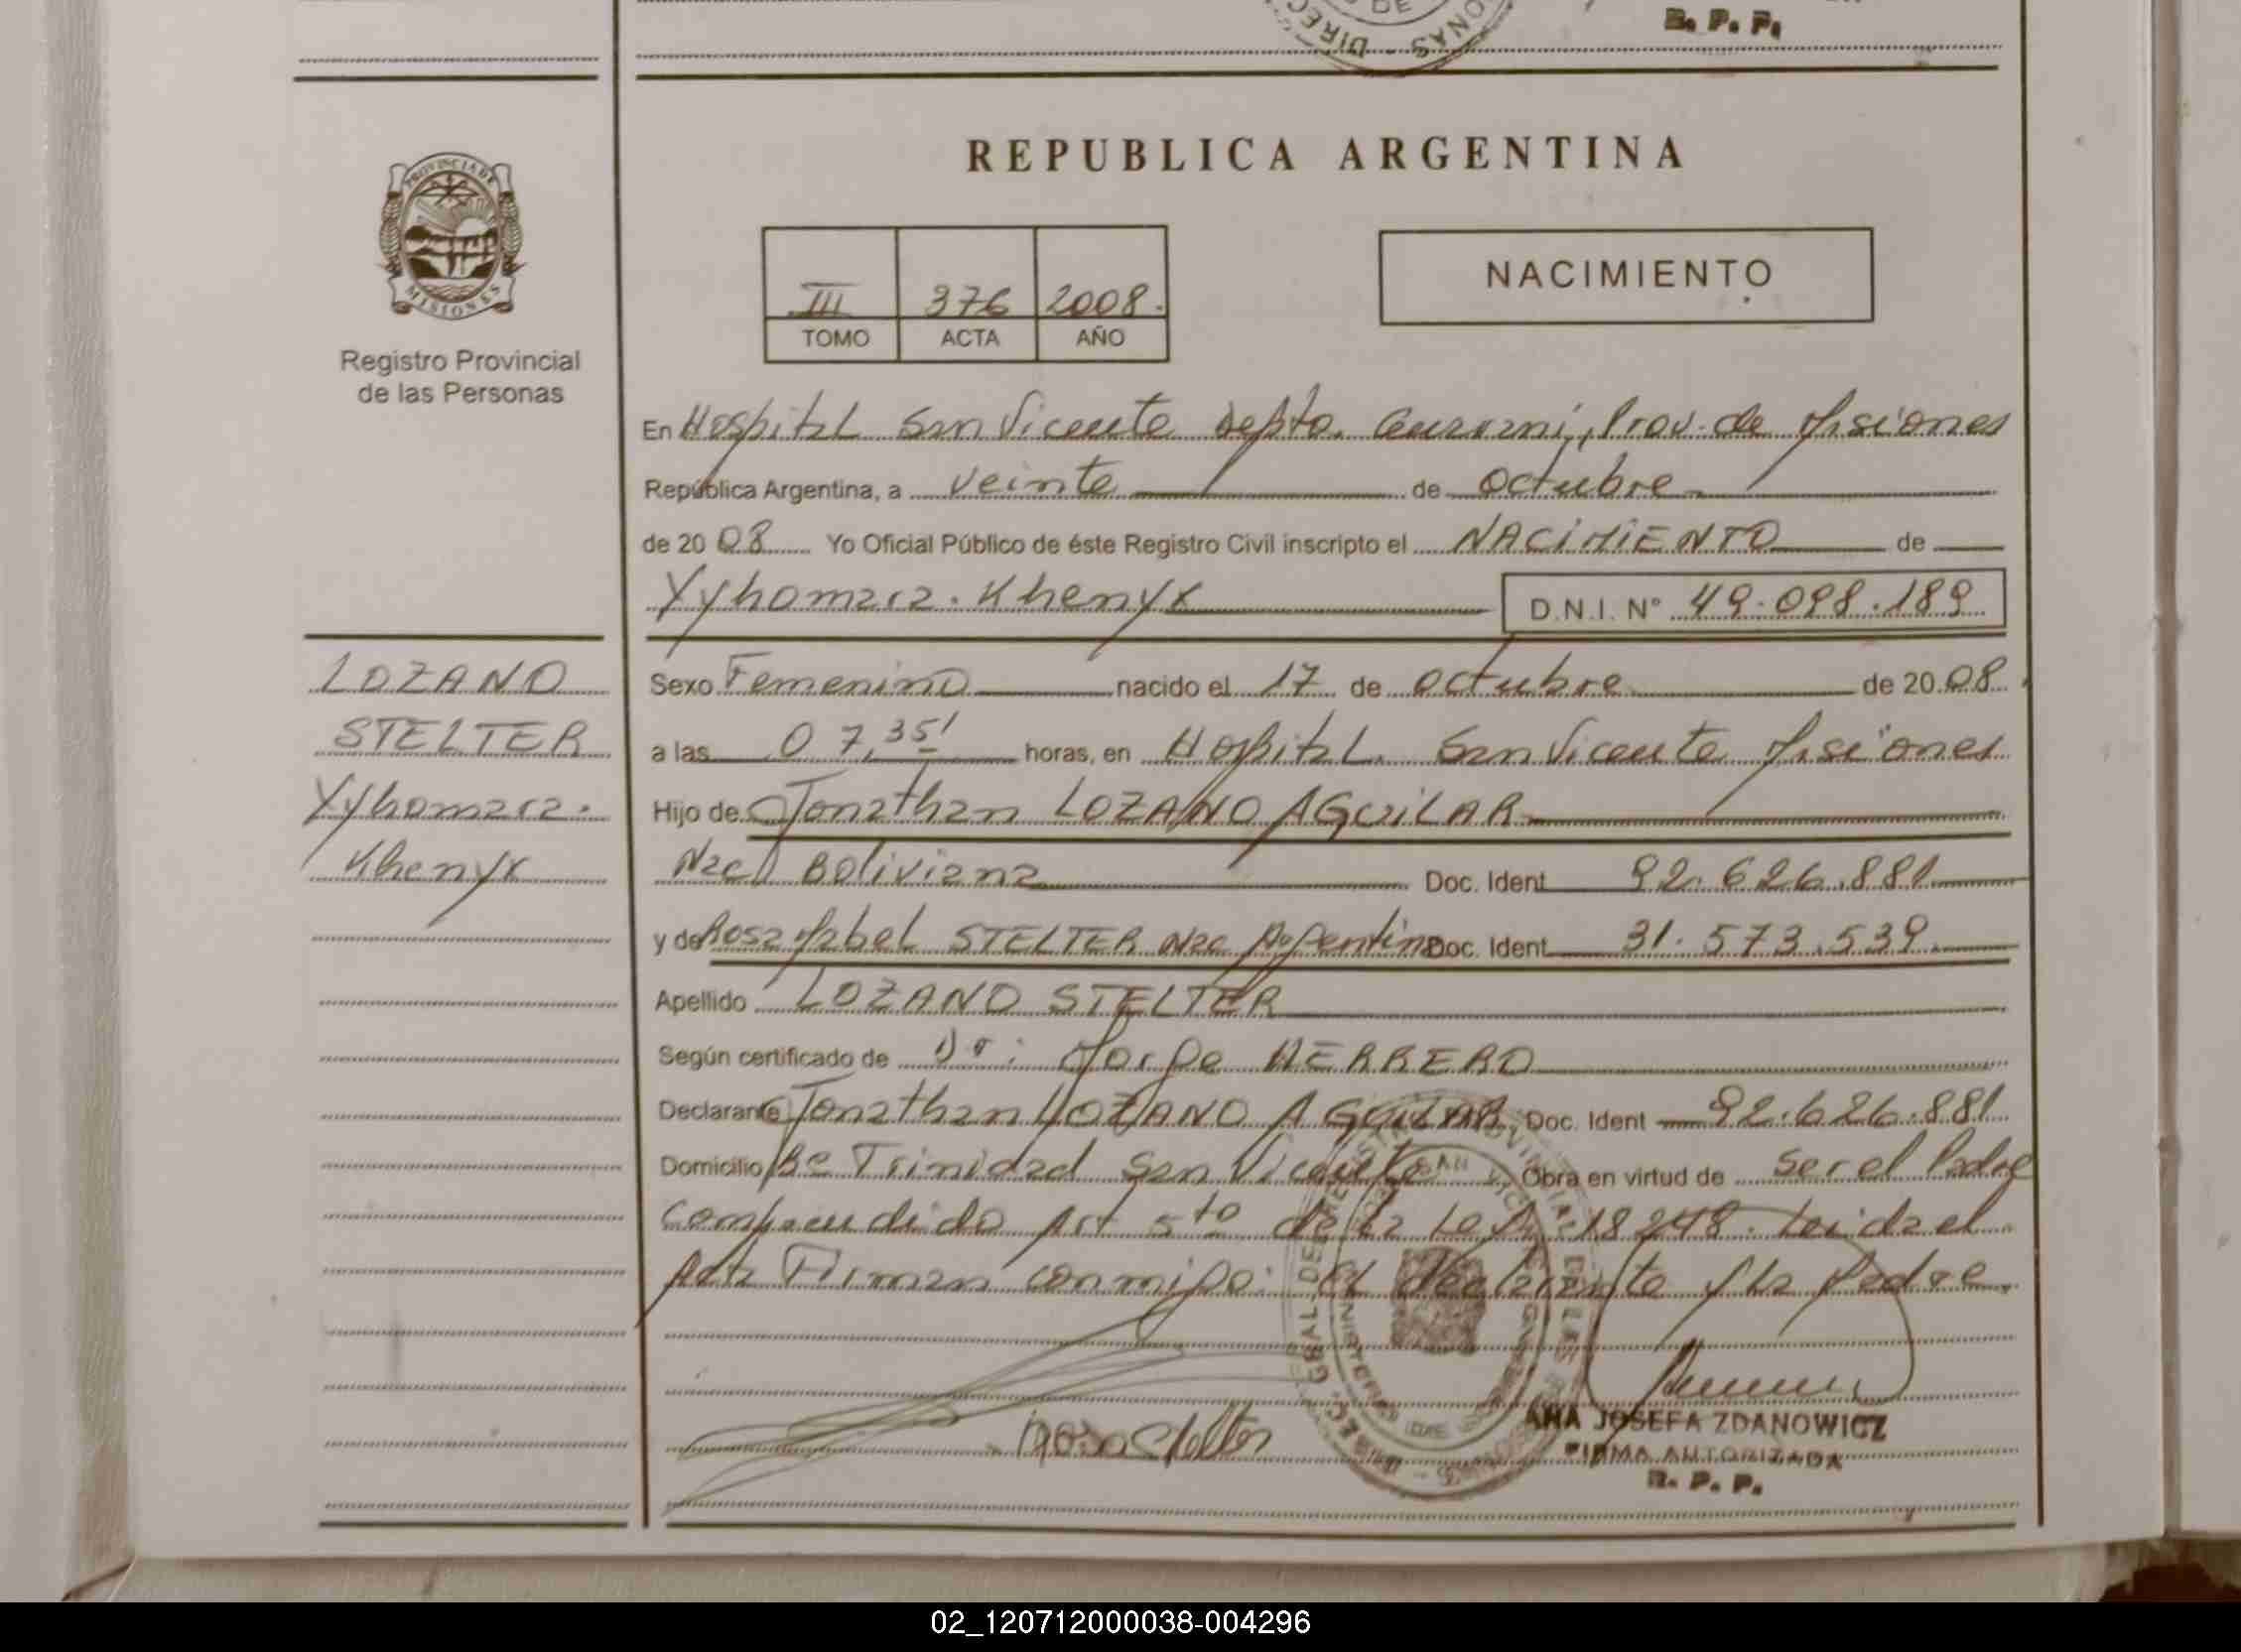 DIREC
NAS
DE
R. P. P.
PROVINCIA DE
MISIONES
Registro Provincial
de las Personas
REPUBLICA ARGENTINA
III 376 2008.
TOMO ACTA AÑO
NACIMIENTO
En Hospital San Vicente Depto. Guarani, Prov. de Misiones
República Argentina, a veinte de octubre
de 2008 Yo Oficial Público de éste Registro Civil inscripto el NACIMIENTO de
Xyhomara. Khenyx D.N.I. N° 49.098.189
LOZANO
STELTER
Xyhomara.
Khenyx
Sexo Femenino nacido el 17 de octubre de 2008.
a las 07,35' horas, en Hospital San Vicente Misiones
Hijo de Jonathan LOZANO AGUILAR
Nac Boliviana Doc. Ident 92.626.881
y de Rosa Mabel STELTER Nac Argentina Doc. Ident 31.573.539
Apellido LOZANO STELTER
Según certificado de Dr: Jorge HERRERO
Declarante Jonathan LOZANO AGUILAR Doc. Ident 92.626.881
Domicilio Bº Trinidad San Vicente Obra en virtud de ser el Padre
Comprendido Art 5to de la Ley 18248. Leida el
Acta Firman conmigo: el declarante y la Madre.
Rosa Stelter
ANA JOSEFA ZDANOWICZ
FIRMA AUTORIZADA
R. P. P.
02_120712000038-004296